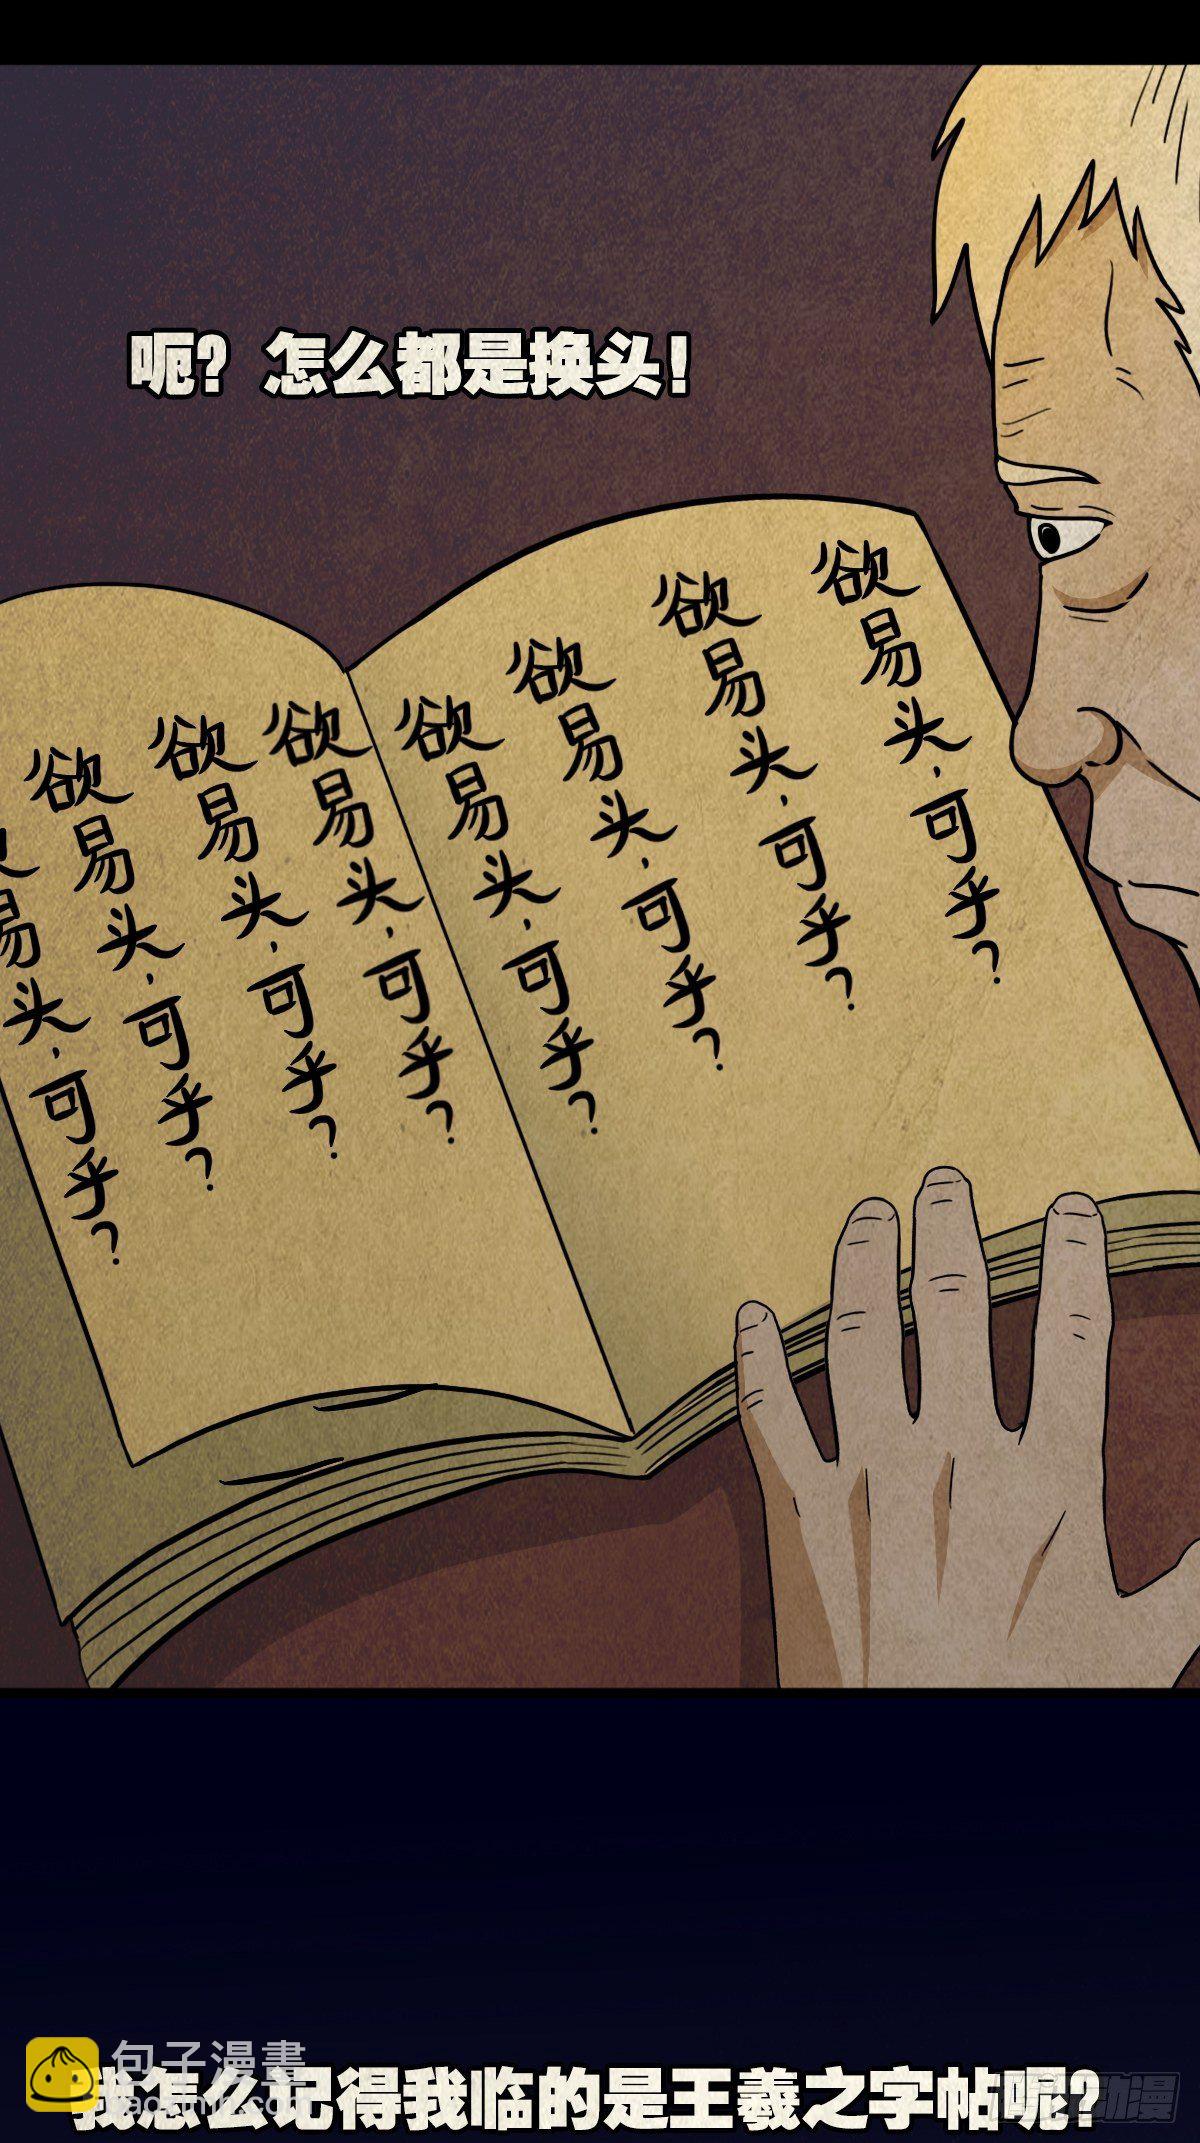 呃？怎么都是换头！
欲易头，可乎？
欲易头，可乎？
欲易头，可乎？
欲易头，可乎？
欲易头，可乎？
欲易头，可乎？
欲易头，可乎？
易头，可乎？
我怎么记得我临的是王羲之字帖呢？
包子漫畫
baozimh.com